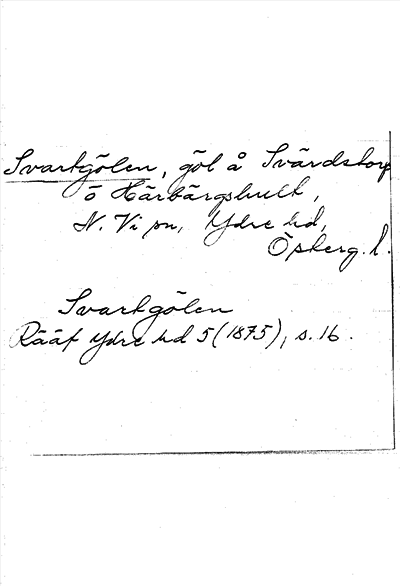 Svartgölen, göl å Svärdstorp
ö Härbärgshult,
N. Vi sn, Ydre hd,
Österg. l.
Svartgölen
Rääf Ydre hd 5 (1875), s. 16.